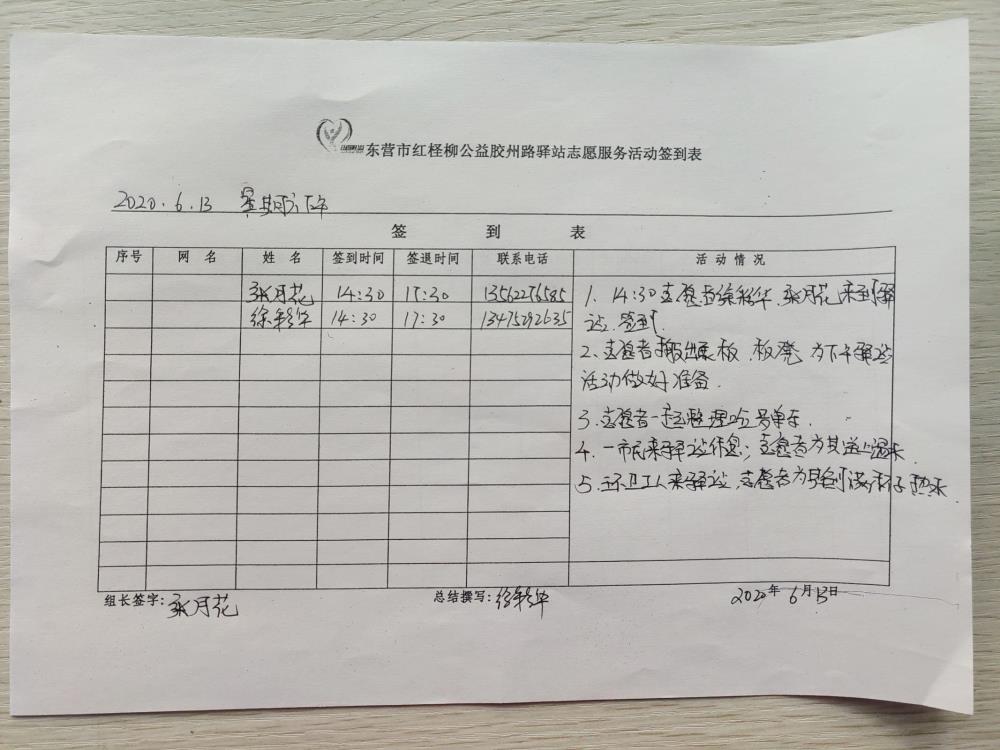 东营市红柽柳公益胶州路驿站志愿服务活动签到表
2020.6.13 星期六下午
签 到 表
序号 网 名 姓 名 签到时间 签退时间 联系电话 活 动 情 况
张月花 14:30 17:30 13562276585
徐彩华 14:30 17:30 13475292635
1、14:30志愿者徐彩华、张月花来到驿
站、签到.
2、志愿者搬出展板、板凳 为下午驿站
活动做好准备.
3、志愿者一起整理 单车.
4、一市民来驿站休息;志愿者为其送上温水.
5、环卫工人来驿站、志愿者为 杯子 热水.
组长签字:张月花 总结撰写:徐彩华 2020年6月13日